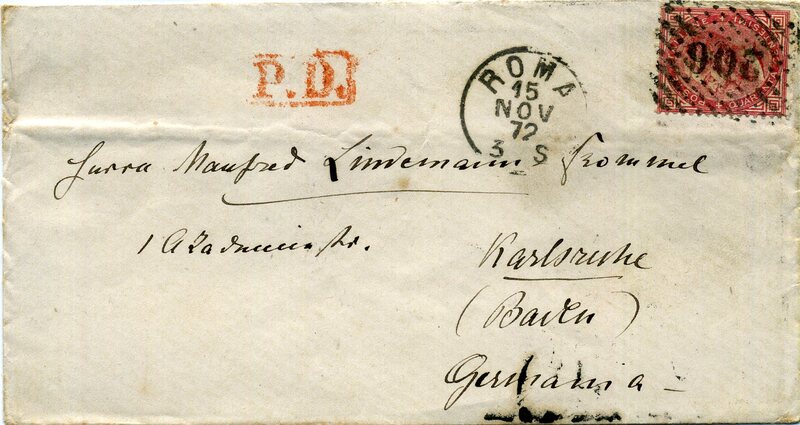 P.D.
ROMA
15
NOV
72
3 S
Herrn Manfred Lindemann Frommel
1 Akademiestr.
Karlsruhe
(Baden)
Germania